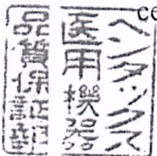 ce
ペンタックス
医用機器
品質保証部